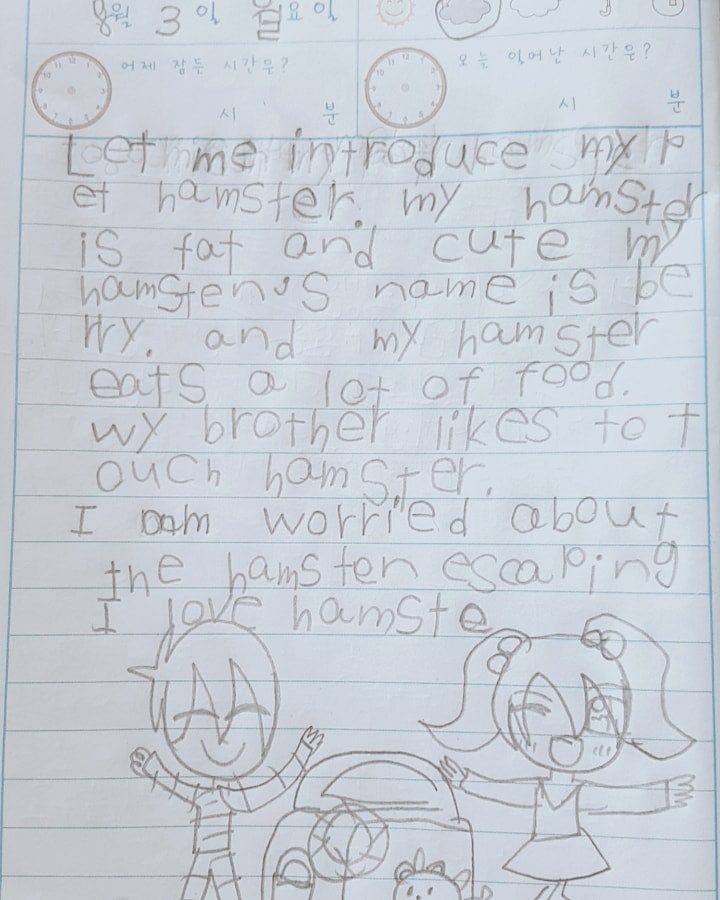 8월 3일 월요일
어제 잠든 시간은?
시 분
오늘 일어난 시간은?
시 분
Let me introduce my p
et hamster. my hamster
is fat and cute my
hamsten's name is be
rry. and my hamster
eats a lot of food.
wy brother likes to t
ouch hamster.
I am worried about
the hamsten escaping
I love hamste